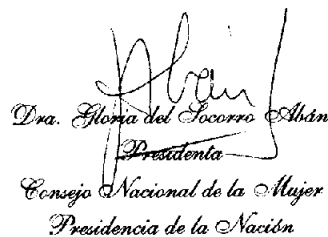 Abán
Dra. Gloria del Socorro Abán
Presidenta
Consejo Nacional de la Mujer
Presidencia de la Nación